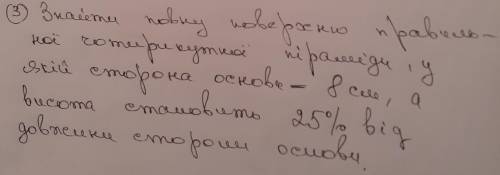 ③ Знайти повну поверхню правиль-
ної чотирикутної піраміди, у
якій сторона основи – 8 см, а
висота становить 25% від
довжини сторони основи.